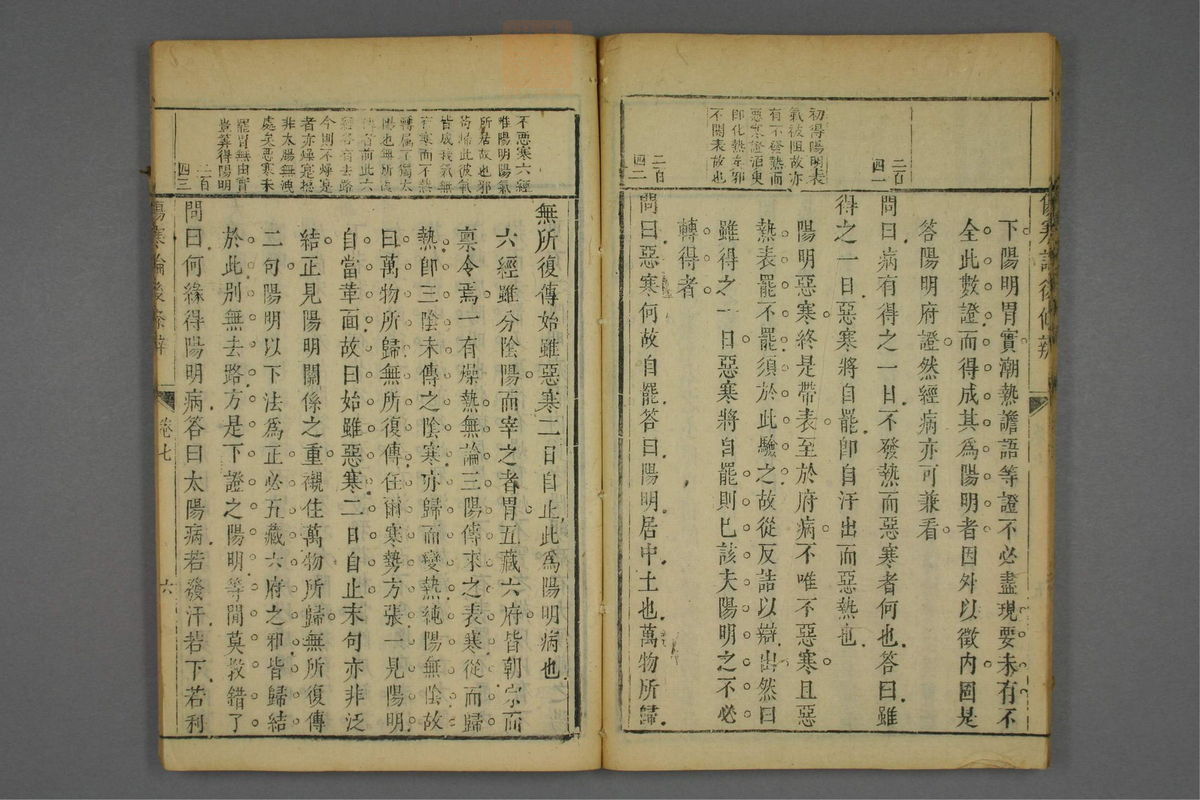 初得陽明表
氣彼阻故亦
有不發熱而
惡寒證須臾
即化熱𡗝邪
不關表故也
二百
四一
二百
四二
下陽明胃實潮熱譫語等證不必盡現要未有不
全此數證而得成其爲陽明者因外以徵内固是
答陽明府證然經病亦可兼看
問曰病有得之一日不發熱而惡寒者何也答曰雖
得之一日惡寒將自罷卽自汗出而惡熱也
陽明惡寒終是帶表至於府病不唯不惡寒且惡
熱表罷不罷須於此驗之故從反詰以辯出然曰
雖得之一日惡寒將自罷則已該夫陽明之不必
轉得者
問曰惡寒何故自罷答曰陽明居中土也萬物所歸
傷寒論後條辨
卷七
六
不惡寒六經
惟陽明陽氣
所居故也邪
苟歸此彼氣
皆成我氣無
有寒而不熱
轉屬了獨太
陽也無所
者前此六
經各有去路
今則不燥是
者亦燥寔極
非太腸無洩
處矣惡寒未
罷胃無由實
豈算得陽明
二百
四三
無所復傳始雖惡寒二日自止此爲陽明病也
六經雖分陰陽而宰之者胃五藏六府皆朝宗而
稟令焉一有燥熱無論三陽傳來之表寒從而歸
熱卽三陰未傳之陰寒亦歸而變熱純陽無陰故
曰萬物所歸無所復傳任爾寒勢方張一見陽明
自當革面故曰始雖惡寒二日自止末句亦非泛
結正見陽明關係之重襯佳萬物所歸無所復傳
二句陽明以下法爲正必五藏六府之邪皆歸結
於此别無去路方是下證之陽明等閒莫教錯了
問曰何緣得陽明病答曰太陽病若發汗若下若利